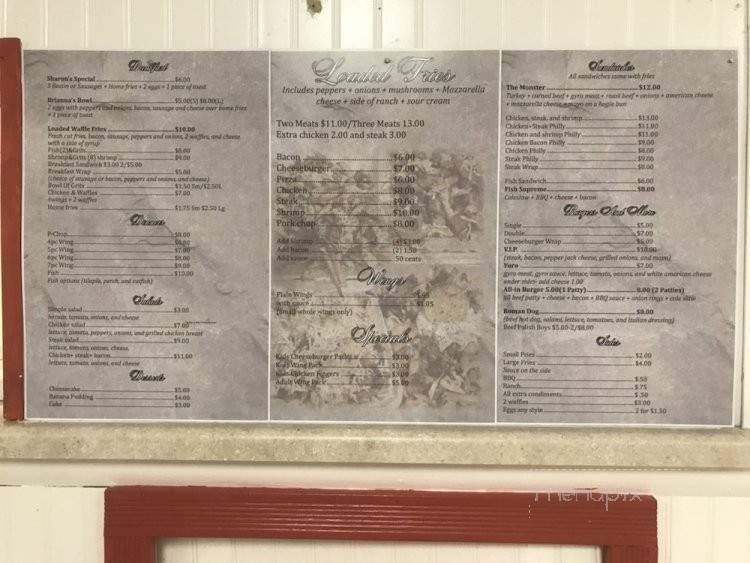 Breakfast
Sharon's Special $6.00
3 Bacon or Sausages + Home fries + 2 eggs + 1 piece of toast
Brianna's Bowl $5.00(S) $8.00(L)
2 eggs with peppers and onions, bacon, sausage and cheese over home fries
+ 1 piece of toast
Loaded Waffle Fries $10.00
Fresh cut fries, bacon, sausage, peppers and onions, 2 waffles, and cheese
with a side of syrup
Fish(2)&Grits $8.00
Shrimp&Grits (8) shrimp $9.00
Breakfast Sandwich $3.00 2/$5.00
Breakfast Wrap $5.00
(choice of sausage or bacon, peppers and onions, and cheese)
Bowl Of Grits $1.50 Sm/$2.50L
Chicken & Waffles $7.00
4wings + 2 waffles
Home fries $1.75 Sm $2.50 Lg.
Dinners
P-Chop $8.00
4pc Wing $6.00
5pc Wing $7.00
6pc Wing $8.00
7pc Wing $9.00
Fish $10.00
Fish options (tilapia, perch, and catfish)
Salads
Simple salad $3.00
lettuce, tomato, onions, and cheese
Chicken salad $7.00
lettuce, tomato, peppers, onions, and grilled chicken breast
Steak salad $9.00
lettuce, tomato, onions, cheese
Chicken+ steak+ bacon $11.00
lettuce, tomato, onions, and cheese
Desserts
Cheesecake $3.00
Banana Pudding $4.00
Cake $3.00
Loaded Fries
Includes peppers + onions + mushrooms + Mozzarella
cheese + side of ranch + sour cream
Two Meats $11.00/Three Meats 13.00
Extra chicken 2.00 and steak 3.00
Bacon $6.00
Cheeseburger $7.00
Pizza $6.00
Chicken $8.00
Steak $9.00
Shrimp $10.00
Pork chop $8.00
Add Shrimp (4) $3.00
Add Bacon (2) 1.50
Add sauce 50 cents
Wings
Plain Wings
with sauce $1.05
(small whole wings only)
Specials
Kids Cheeseburger $3.00
Kids Wing Pack $3.00
Kids Chicken Fingers $3.00
Adult Wing Pack $5.00
Sandwiches
All sandwiches come with fries
The Monster $12.00
Turkey + corned beef + gyro meat + roast beef + onions + american cheese
+ mozzarella cheese + mayo on a hogie bun
Chicken, steak, and shrimp $13.00
Chicken+Steak Philly $11.00
Chicken and shrimp Philly $11.00
Chicken Bacon Philly $9.00
Chicken Philly $8.00
Steak Philly $9.00
Steak Wrap $8.00
Fish Sandwich $6.00
Fish Supreme $8.00
Coleslaw + BBQ + cheese + bacon
Burgers And More
Single $5.00
Double $7.00
Cheeseburger Wrap $5.00
V.I.P $10.00
(steak, bacon, pepper jack cheese, grilled onions, and mayo)
Yuro $7.00
gyro meat, gyro sauce, lettuce, tomato, onions, and white american cheese
All-in Burger 5.00(1 Patty) 8.00 (2 Patties)
all beef patty + cheese + bacon + BBQ sauce + onion rings + cole slaw
Roman Dog $8.00
(beef hot dog, salami, lettuce, tomatoes, and italian dressing)
Beef Polish Boys $5.00-2/$8.00
Sides
Small Fries $2.00
Large Fries $4.00
Sauce on the side
BBQ $.50
Ranch $.75
All extra condiments $.50
2 waffles $3.00
Eggs any style 2 for $1.50
menupix